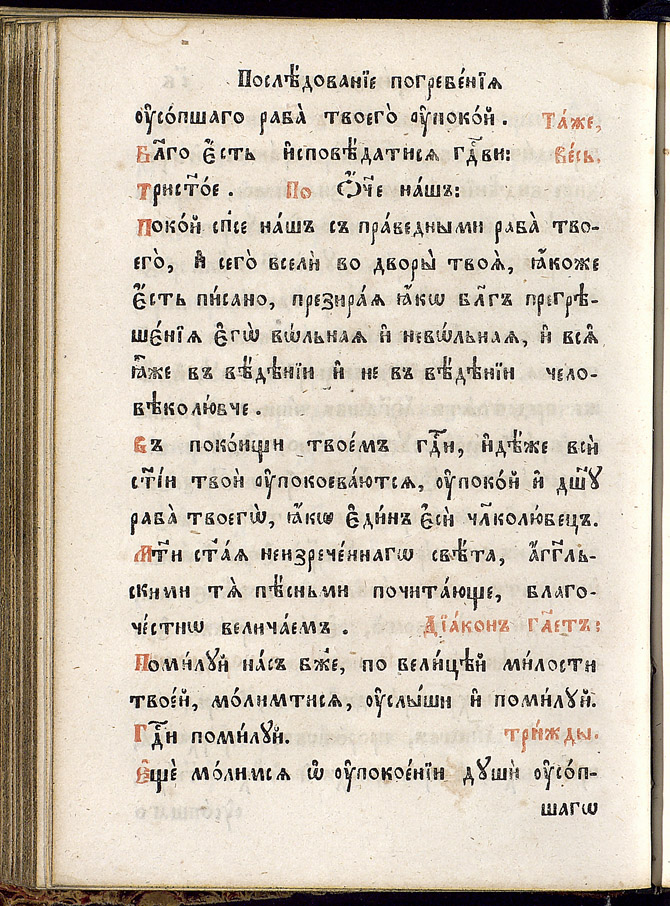 Послѣ́дованїе погребе́нїѧ
оу҆со́пшаго раба̀ твоегѡ̀ оу҆поко́й. Та́же,
Бл҃го є҆́сть и҆сповѣ́датисѧ гдⷭ҇ви: ве́сь.
Трист҃о́е. По Ѻ҆́ч҃е на́шъ:
Поко́й сп҃се на́шъ съ пра́ведными раба̀ тво-
его̀, и҆ сего̀ вселѝ во дворы̀ твоѧ̀, ꙗ҆́коже
є҆́сть пи́сано, презира́ѧ ꙗ҆́кѡ бл҃гъ прегрѣ-
ше́нїѧ є҆гѡ̀ вѡ́льнаѧ и҆ невѡ́льнаѧ, и҆ всѧ̑
ꙗ҆̀же въ вѣ́дѣнїи и҆ не въ вѣ́дѣнїи чело-
вѣколю́бче.
Въ поко́ищи твое́мъ гдⷭ҇и, и҆дѣ́же всѝ
ст҃і́и твоѝ оу҆покоева́ютсѧ, оу҆поко́й и҆ дш҃ꙋ
раба̀ твоегѡ̀, ꙗ҆́кѡ є҆ди́нъ є҆сѝ чл҃колю́бецъ.
Мт҃и ст҃а́ѧ неизрече́ннагѡ свѣ́та, а҆́гг҃ль-
скими тѧ̀ пѣ́сньми почита́юще, благо-
че́стнѡ велича́емъ. Дїа́конъ гл҃етъ:
Поми́лꙋй на́съ бж҃е, по вели́цѣй ми́лости
твое́й, мо́лимтисѧ, оу҆слы́ши и҆ поми́лꙋй.
Гдⷭ҇и поми́лꙋй. три́жды.
Є҆щѐ мо́лимсѧ ѡ҆ оу҆покое́нїи дꙋшѝ оу҆со́п-
шагѡ